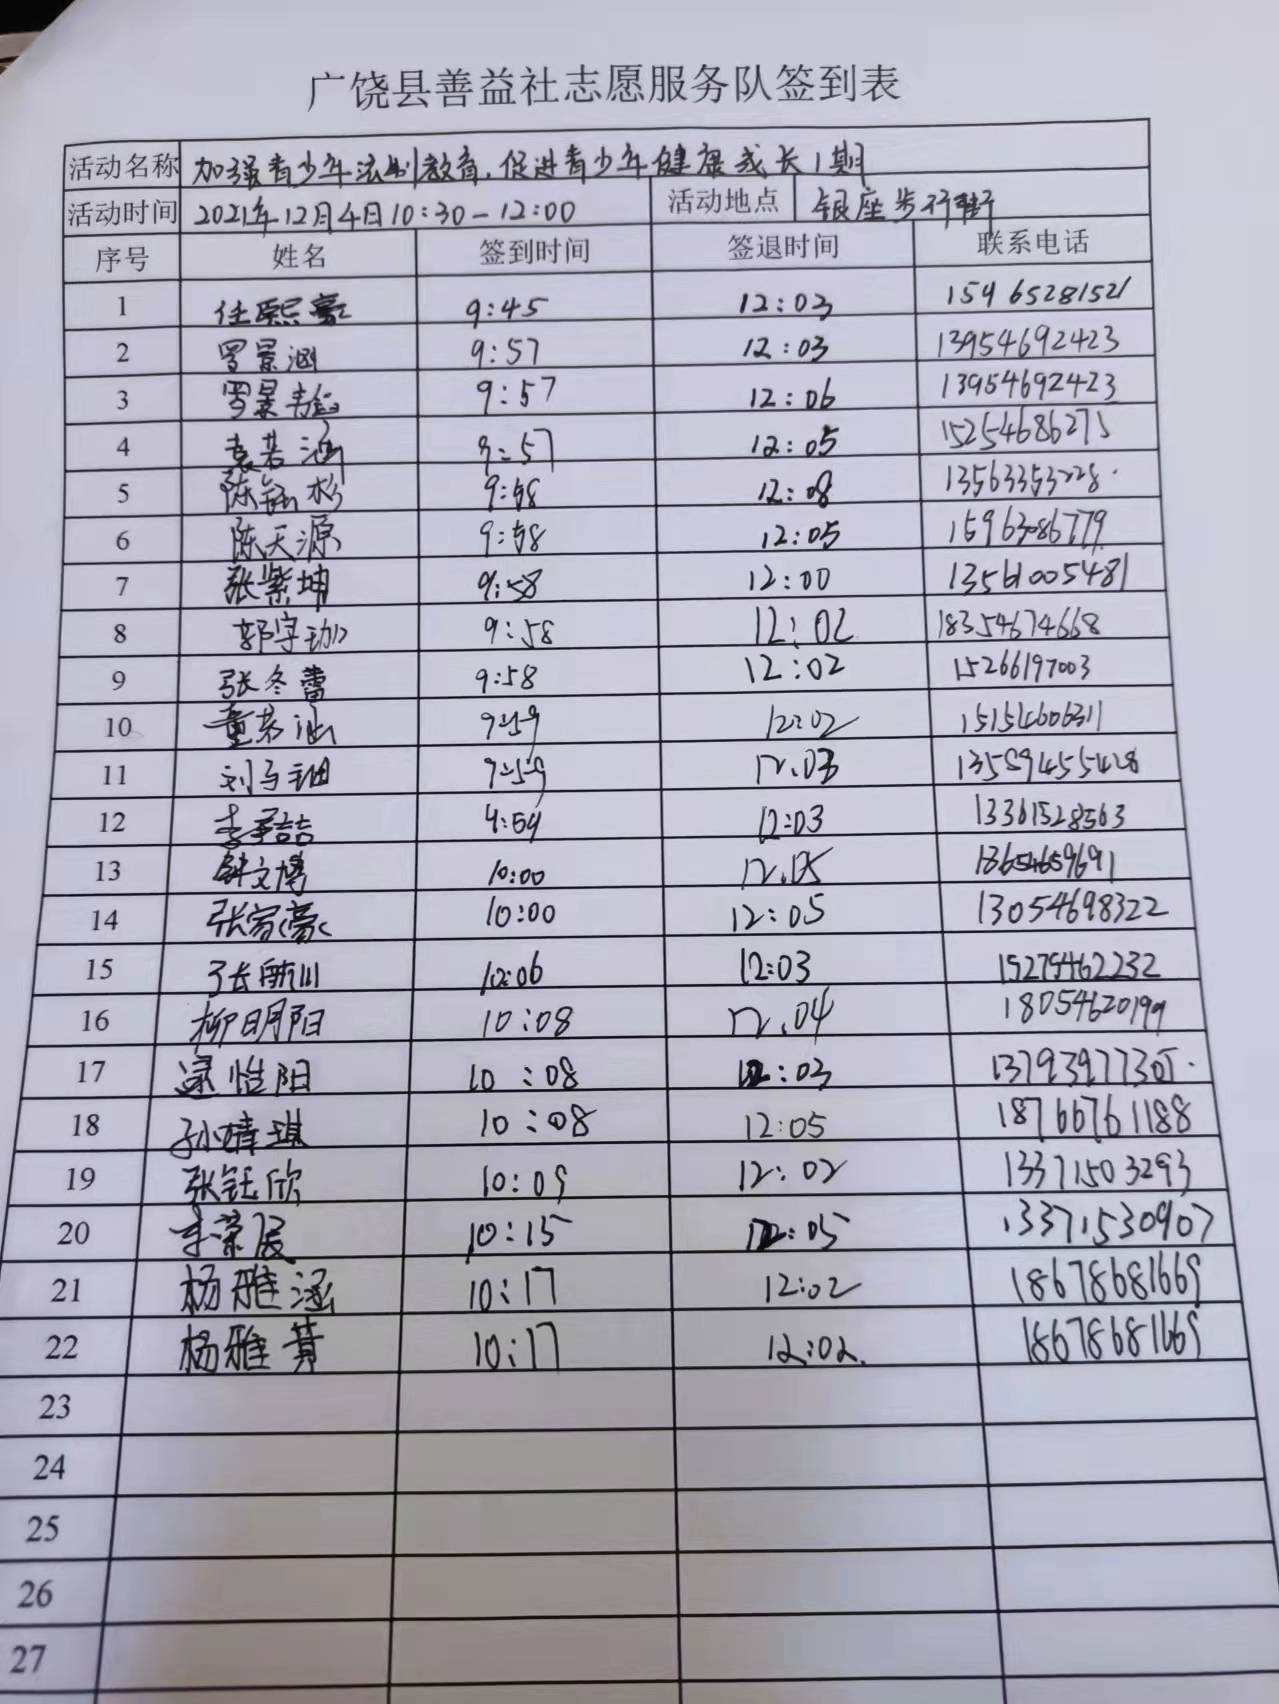 广饶县善益社志愿服务队签到表
活动名称 加强青少年法制教育,促进青少年健康成长1期
活动时间 2021年12月4日10:30-12:00 活动地点 银座步行街
序号 姓名 签到时间 签退时间 联系电话
1 任熙豪 9:45 12:03 15965281521
2 罗景涵 9:57 12:03 13954692423
3 罗景 9:57 12:06 13954692423
4 袁若涵 9:57 12:05 15254686275
5 陈钰杉 9:58 12:08 13563353228
6 陈天源 9:58 12:05 15963086779
7 张紫坤 9:58 12:00 13561005481
8 郭宇珈 9:58 12:02 18354674668
9 张冬蕾 9:58 12:02 15266197003
10 董若涵 9:59 12:02 15154606311
11 刘 9:59 12:03 13589455428
12 李 12:03 13361528563
13 钟文博 10:00 12:05 13654659691
14 张家豪 10:00 12:05 13054698322
15 张 10:06 12:03 15279462232
16 柳明阳 10:08 12:04 18054620199
17 逯惜阳 10:08 12:03
18 孙婧琪 10:08 12:05 18766761188
19 张钰欣 10:09 12:02 13371503293
20 李荣宸 10:15 12:05 13371530907
21 杨雅涵 10:17 12:02 18678681669
22 杨雅萁 10:17 12:02 18678681669
23
24
25
26
27